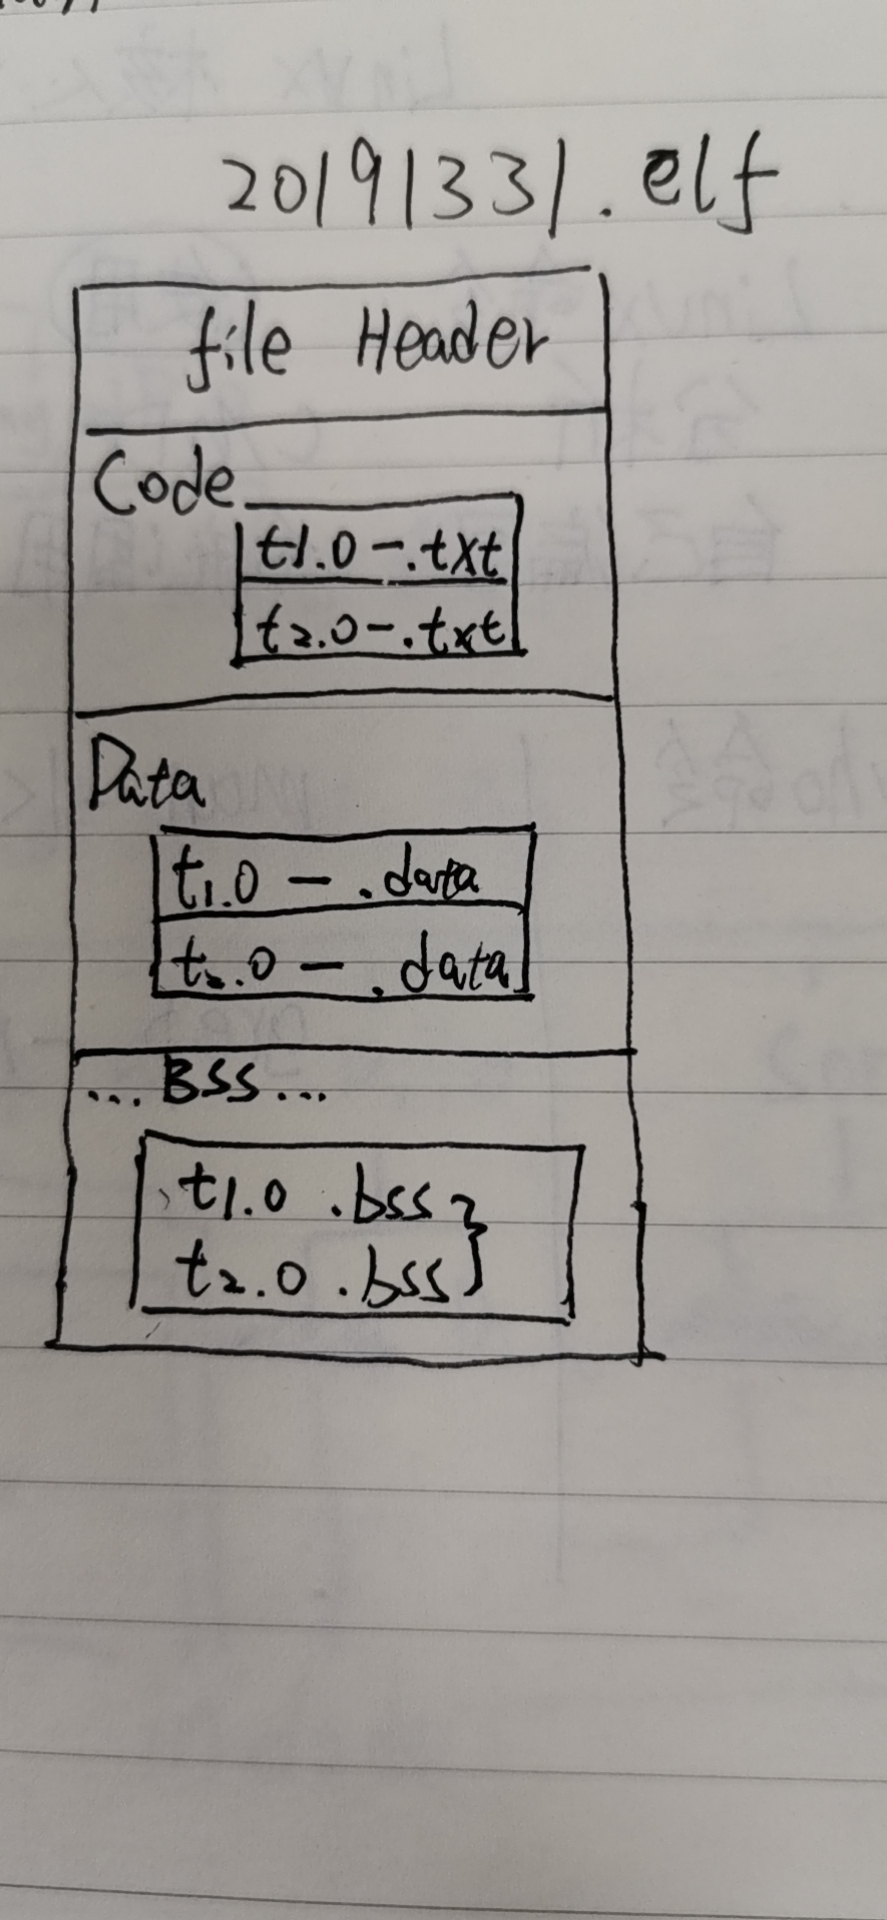 20191331.elf
file Header
Code
t1.0-.txt
t2.0-.txt
Data
t1.0 - .data
t2.0 - .data
...BSS...
t1.0 .bss
t2.0 .bss